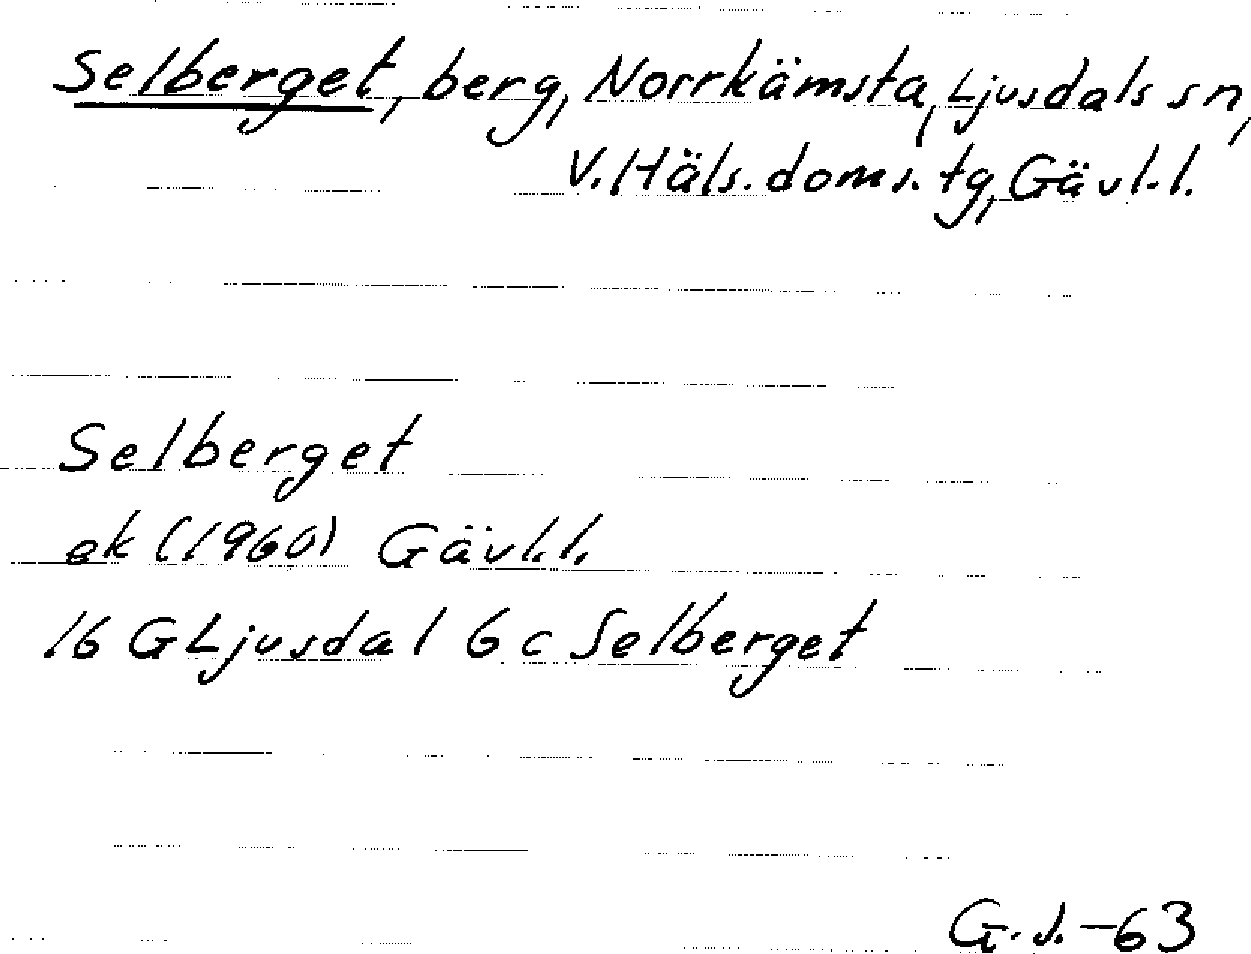 Selberget, berg, Norrkämsta, Ljusdals sn,
V. Häls. doms. tg, Gävl. l.
Selberget
ek (1960) Gävl. l.
16 G Ljusdal 6 c Selberget
G. J. -63